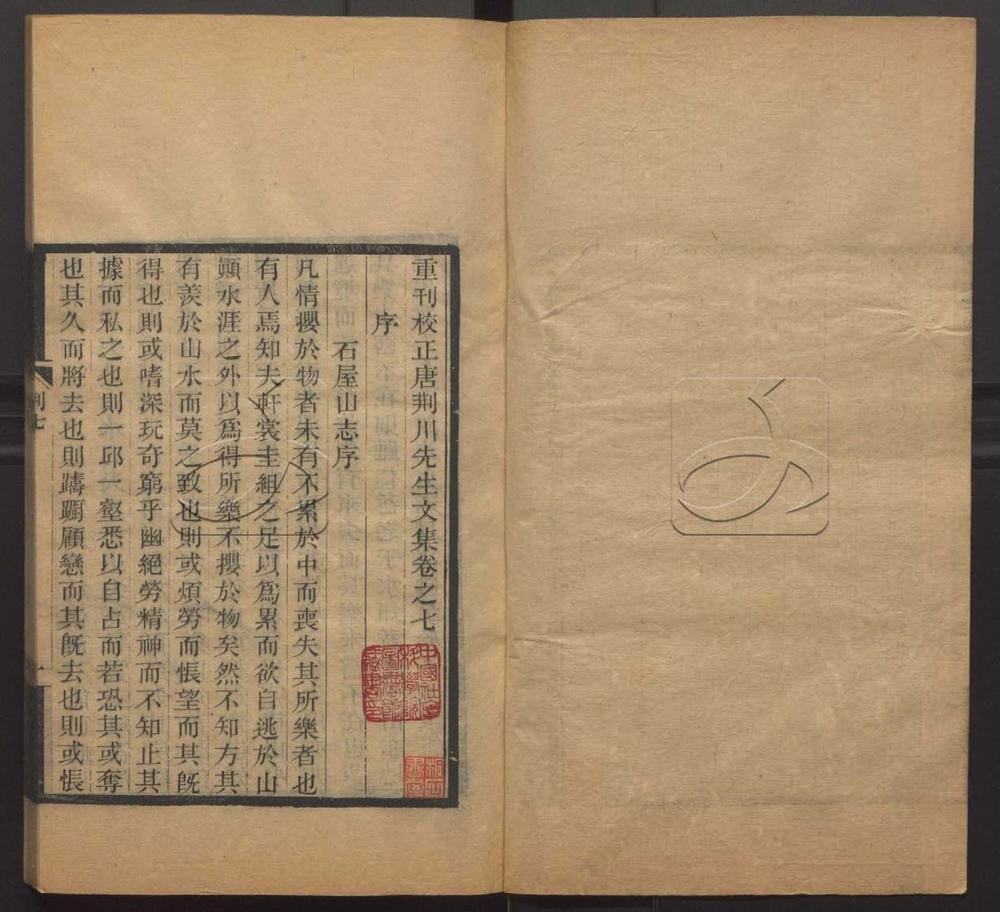 重刊校正唐荆川先生文集卷之七
序
石屋山志序
凡情攖於物者未有不累於中而喪失其所樂者也
有人焉知夫軒裳圭組之足以爲累而欲自逃於山
顚水涯之外以爲得所樂不攖於物矣然不知方其
有羡於山水而莫之致也則或煩勞而悵望而其旣
得也則或嗜深玩奇窮乎幽絕勞精神而不知止其
據而私之也則一邱一壑悉以自占而若恐其或奪
也其久而將去也則躊躕顧戀而其旣去也則或悵